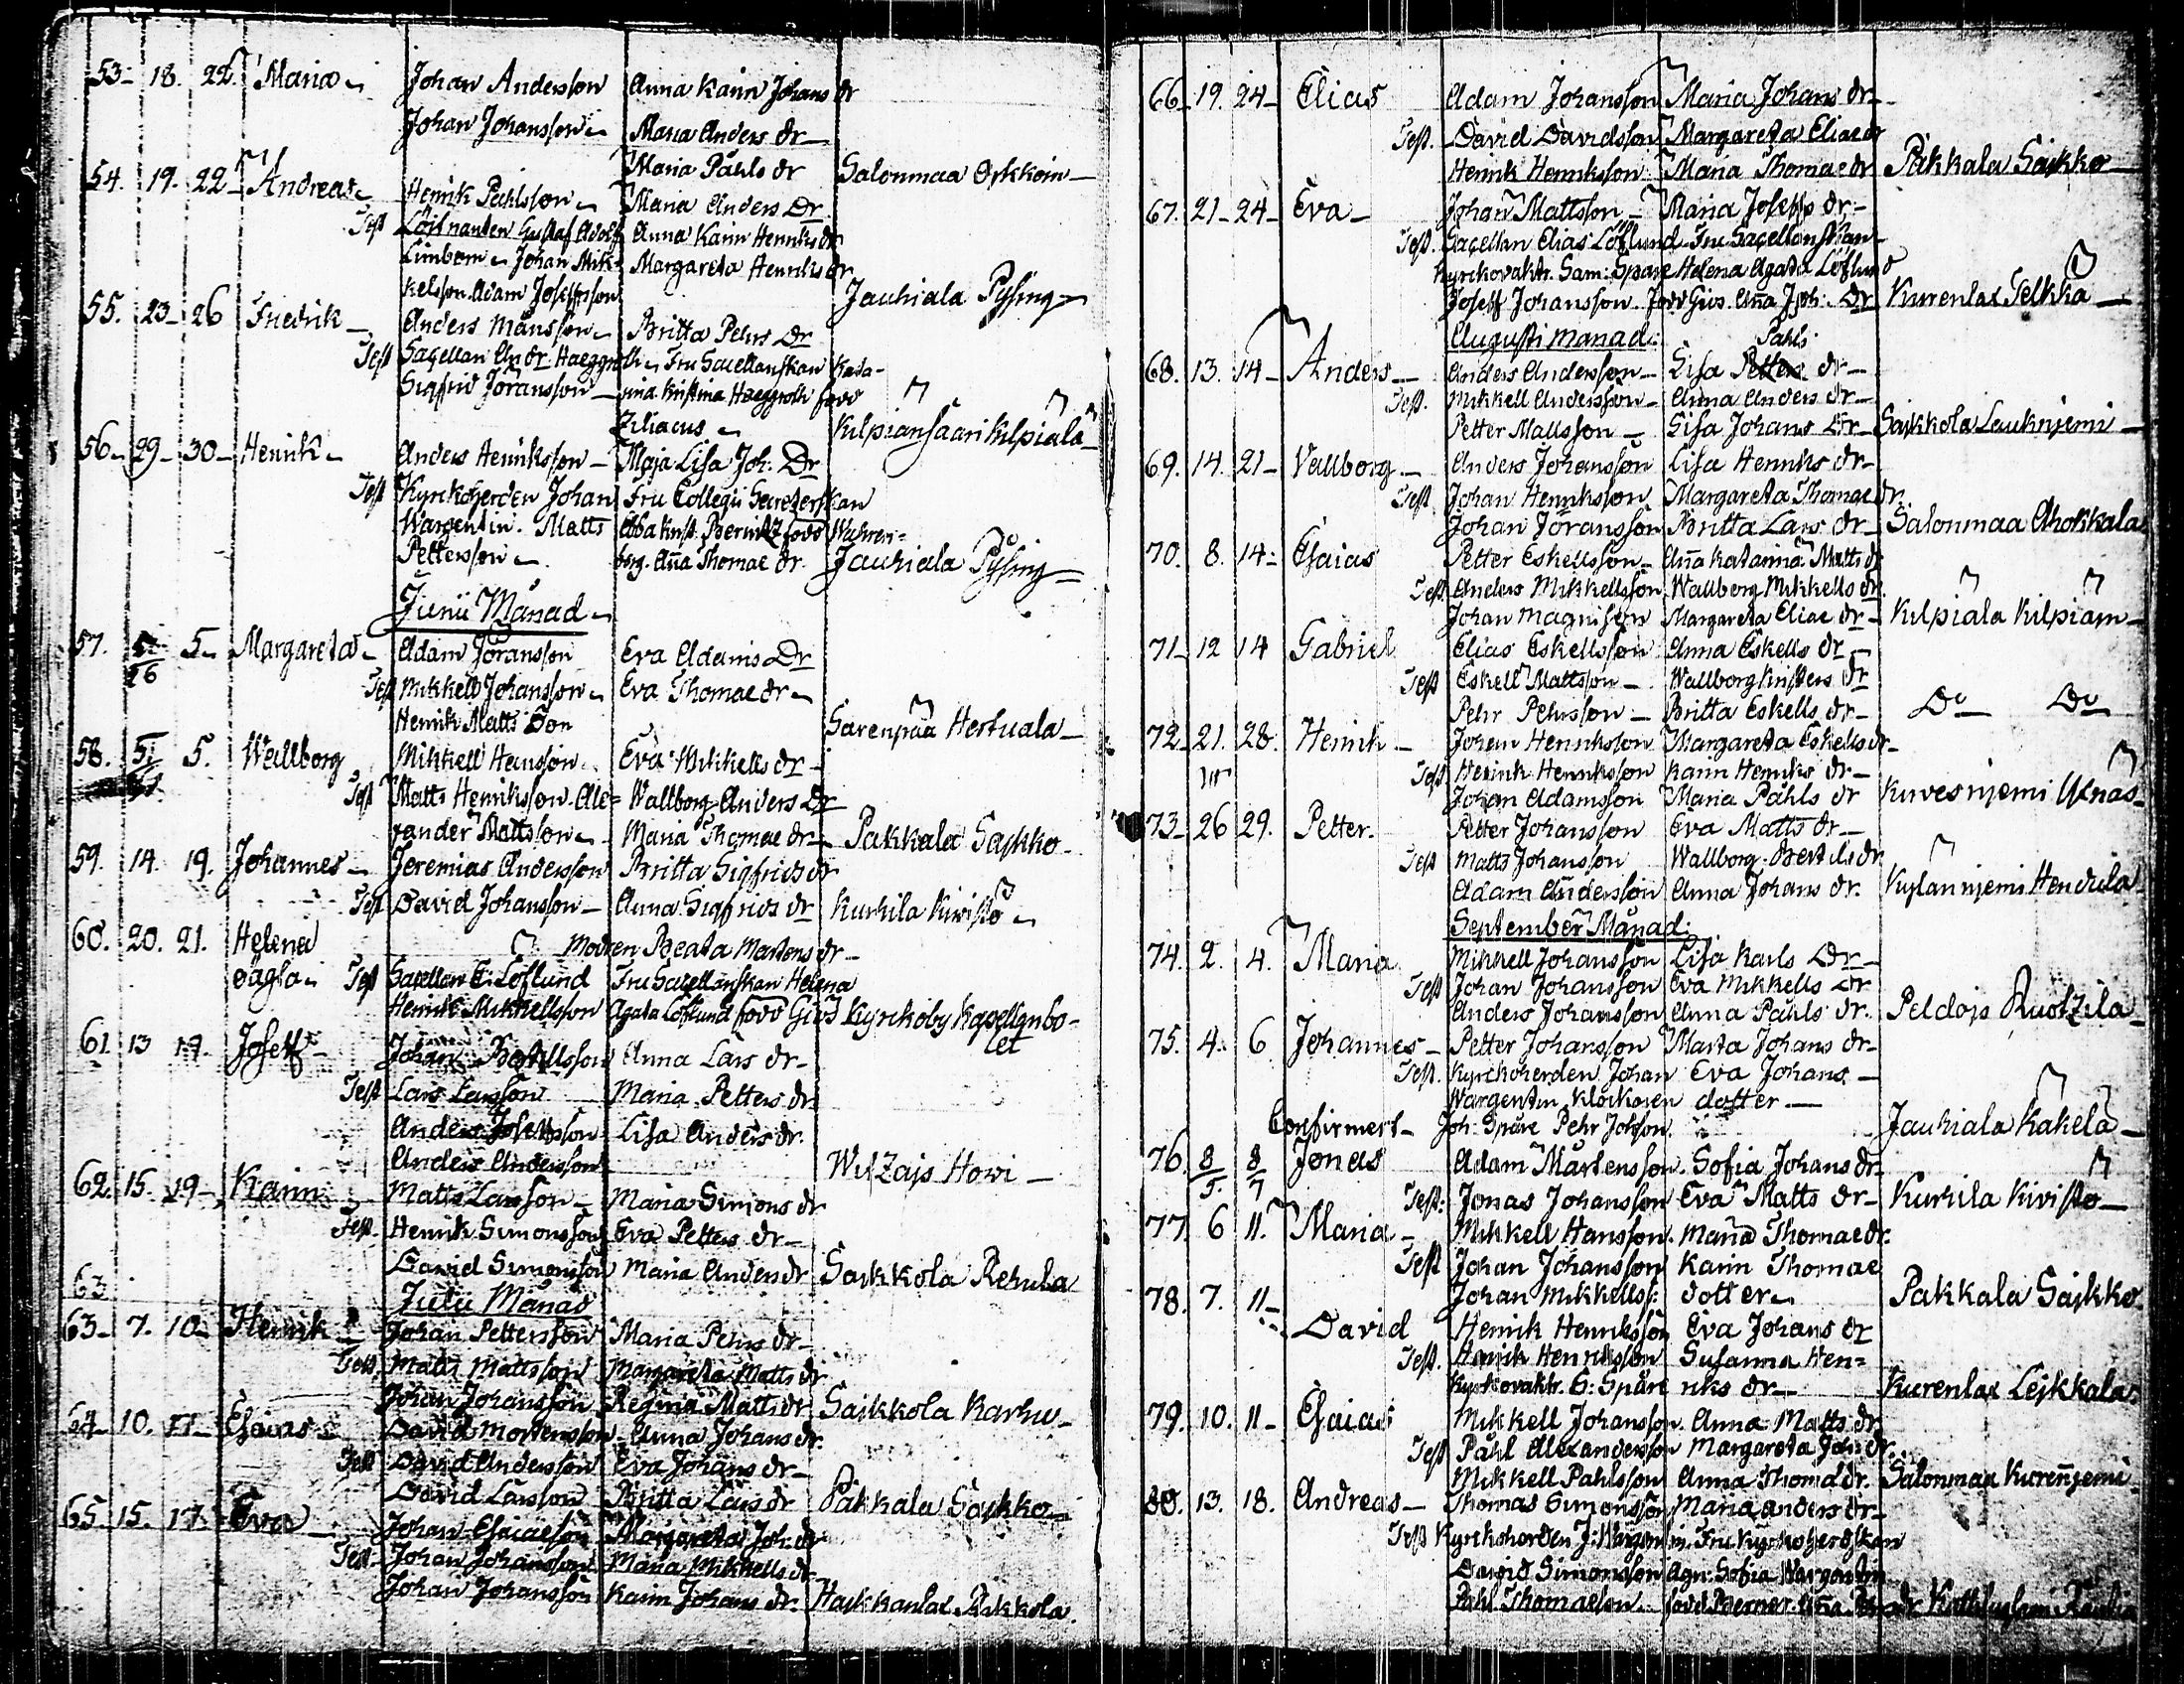 53. 18. 22. Maria Johan Andersson Anna Karin Johans dr
Johan Johansson Maria Anders dr
Maria Påhls dr Salonmaa Orkkoin
54. 19. 22 Andreas Henrik Pahlsson Maria Anders Dr
Test Löitnanten Gustaf Adolf Anna Karin Henriks dr
Limbom Johan Mik- Margareta Henriks dr
kelsson Adam Josepsson Jauhiala Pysing
55. 23 26 Fredrik Anders Månsson Britta Pehrs Dr
Test Sacellan Andr. Haeggroth Fru Sacellanskan Kata-
Sigfrid Joransson rina Kristina Haeggroth född
Ziliacus Kilpiansaari Kilpiala
56. 29 30 Henrik Anders Henriksson Maja Lisa Joh. Dr
Test Kyrckoherden Johan Fru Collegii Secreterskan
Wargentin. Matts Ebba Krist. Bernitz född Wahren-
Pettersson borg. Aña Thomae dr. Jauhiala Pysing
Junii Månad
57. 5. 5 Margareta Adam Joransson Eva Adams Dr
26 Test Mikkell Johansson Eva Thomae dr
Henrik Matts Son Sarenpää Hertuala
58. 5. 5. Wallborg Mikkell Hansson Eva Mikkells dr
Test Matts Henriksson. Ale- Wallborg Anders Dr
xander Mattsson Maria Thomae dr Pakkala Sajkko
59. 14. 19. Johannes Jeremias Andersson Britta Sigfrids dr
Test David Johansson Anna Sigfrids dr Kurkila Kivistö
60. 20. 21. Helena Modren Beata Martens dr
oägta Test Sacellan E. Löflund Fru Sacellanskan Helena
Henrik Mikkellsson Agata Löflund född Giös Kyrckoby Kapellanbo-
let
61 13 19. Joseff Johan Bertillsson Anna Lars dr
Test Lars Larsson Maria Petters dr
Anders Joseffsson Lisa Anders dr.
Anders Andersson Wifzajs Howi
62. 15. 19 Karin Matts Larsson Maria Simons dr
Test. Henrik Simonsson Eva Petters dr
David Simonsson Maria Anders dr Sajkkola Rehula
63
Julii Månad
63 7. 10 Henrik Johan Pettersson Maria Pehrs dr
Test Matts Mattsson Margareta Matts dr
Johan Johansson Regina Matts dr Sajkkola Karhu
64 10. 11 Esaias David Mortensson Anna Johans dr.
Test David Andersson Eva Johans dr
David Larsson Britta Lars dr Pakkala Sajkko
65 15. 17. Eva Johan Esaiaeson Margareta Joh. dr
Test Johan Johansson Maria Mikkells dr
Johan Johansson Karin Johans dr. Hajkkanlax Pikkola.
66 19. 24 Elias Adam Johansson Maria Johans dr
Test. David Davidsson Margareta Eliae dr
Henrik Henriksson Maria Thomae dr Pakkala Sajkko
67. 21 24 Eva Johan Mattsson Maria Joseps dr
Test. Sacellan Elias Löflund Fru Sacellanskan
Kyrkovaktr. Sam: Spare Helena Agata Löflund
Joseff Johansson. Född Giös. Aña Joh. Dr Kurenlax Telkkä
Augusti Manad: Pahls
68. 13. 14 Anders Anders Andersson Lisa Petters dr
Test. Mikkell Andersson Anna Anders dr
Petter Mattsson Lisa Johans Dr Sajkkola Laukniemi
69. 14. 21 Vallborg Anders Johansson Lisa Henriks dr
Test. Johan Henriksson Margareta Thomae dr.
Johan Joransson Britta Lars dr Salonmaa Ahokkala
70. 8. 14. Esaias Petter Eskellsson Aña Katarina Matts dr
Test. Anders Mikkellsson Wallborg Mikkells dr.
Johan Magnisson Margareta Eliae dr Kilpiala Kilpiäin
71 12 14 Gabriel Elias Eskellsson Anna Eskells dr
Test Eskell Mattsson Wallborg Kristers dr
Pehr Pehrsson Britta Eskells dr Do Do
72. 21. 28. Henrik Johan Henriksson Margareta Eskells dr
Test Henrik Henriksson Karin Henriks dr
Johan Adamsson Maria Påhls dr Kuvesnjemi
73. 26 29. Petter. Petter Johansson Eva Matts dr
Test Matts Johansson Wallborg Bertils dr
Adam Andersson Anna Johans dr. Kylänniemi Hendula
September Månad:
74. 2. 4. Maria Mikkell Johansson Lisa Karls Dr
Test Johan Johansson Eva Mikkells dr
Anders Johansson Anna Pahls dr. Peldojs Ruotzila
75. 4. 6 Johannes Petter Johansson Marta Johans dr
Test. Kyrckoherden Johan Eva Johans
Wargentin Klockaren dotter
Confirmert Joh. Spåre Pehr Johson. Jauhiala Kakelä
76 8/5. 8/7 Jonas Adam Mårtensson. Sofia Johans dr
Test: Jonas Johansson Eva Matts dr Kurkila Kivistö
77. 6 11. Maria Mikkell Hansson. Maria Thomae dr.
Test Johan Johansson Karin Thomae
Johan Mikkells: dotter Pakkala Sajkko
78. 7. 11 David Henrik Henriksson Eva Johans dr
Test. Henrik Henriksson Susanna Hen-
Kyrkovaktr. S: Spåre riks dr Kurenlax Leikkala
79. 10. 11 Esaias Mikkell Johansson. Anna Matts dr
Test Påhl Alexandersson Margareta Joh. dr.
Mikkell Pahlsson Anna Thoma dr. Salonmaa Kureñjemi
80. 13. 18. Andreas Thomas Simonsson Maria Anders dr
Test Kyrkoherden J: Wargentin. Fru Kyrckoherdskan
David Simonsson Agn: Sofia Wargentin
Påhl Thomaeson född Berner. Aña dr